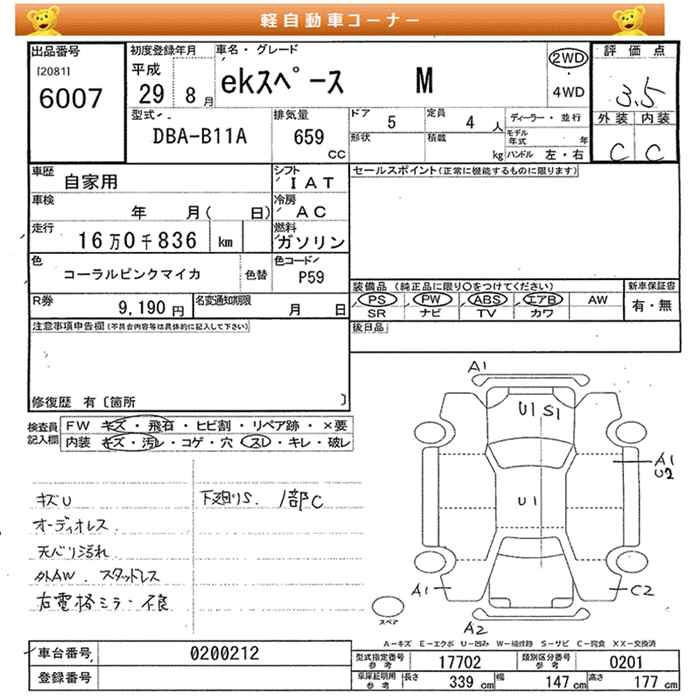 軽自動車コーナー
出品番号
[2081]
6007
初度登録年月
平成
29 8月
車名・グレード
ekスペース M
2WD
4WD
評価点
3.5
外装 内装
C C
型式
DBA-B11A
排気量
659
CC
ドア
5
定員
4人
ディーラー・並行
形状
積載
kg
モデル年式 年
ハンドル 左・右
車歴
自家用
シフト
IAT
車検
年 月( 日)
冷房
AC
走行
16万0千836 km
燃料
ガソリン
色
コーラルピンクマイカ
色替
色コード
P59
R券
9,190円
名変通知期限
月 日
セールスポイント(正常に機能するものに限ります)
装備品 (純正品に限り○をつけてください)
PS PW ABS エアB AW
SR ナビ TV カワ
新車保証書
有・無
後日品
注意事項申告欄(不具合内容等は具体的に記入して下さい)
修復歴 有〔箇所 〕
検査員記入欄
FW キズ・飛石・ヒビ割・リペア跡・×要
内装 キズ・汚レ・コゲ・穴・スレ・キレ・破レ
キズU
オーディオレス
天バリ汚れ
外AW. スタッドレス
右電格ミラー不良
下廻りS. 1部C
A1
U1 S1
A1
U2
U1
A1
C2
A2
スペア
A-キズ E-エクボ U-凹み W-補修跡 S-サビ C-腐食 XX-交換済
車台番号
0200212
登録番号
型式指定番号
参考
17702
類別区分番号
参考
0201
車庫証明用
参考
長さ 339cm 幅 147cm 高さ 177cm